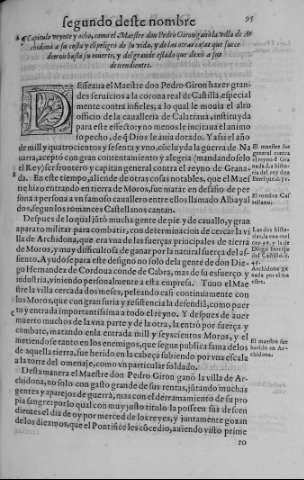 segundo deste nombre 95
¶ Capitulo veynte y ocho, como el Maestre don Pedro Giron ganò la villa de Ar
chidona a su costa y è peligro de su vida, y de las otras cosas que suce
dieron hasta su muerte, y del grande estado que dexò a sus
decendientes.
DEsseaua el Maestre don Pedro Giron hazer gran-
des seruicios a la corona real de Castilla, especial
mente contra infieles, a lo qual le mouia el alto
officio de la cauallería de Calatraua, instituyda
para este effecto: y no menos le inclinaua el animo
proprio, de q̃ Dios le auia dotado. Y assi el año
de mill y quatrocientos y sesenta y vno, cõcluyda la guerra de Na
uarra, aceptó con gran contentamiento y alegria (mandandoselo
el Rey) ser frontero y capitan general contra el reyno de Grana-
da. En este tiempo, allende de otras cosas notables, que el Maes
tre hizo entrando en tierra de Moros, fue matar en desafio de per
sona a persona a vn famoso cauallero entre ellos llamado Albayal
dos, segun los romances Castellanos cantan.
Despues de lo qual jũtò mucha gente de pie y de cauallo, y gran
aparato militar para combatir, con determinacion de cercar la vi
lla de Archidona, que era vna de las fuerças principales de tierra
de Moros, y muy difficultosa de ganar por la natural fuerça del as-
siento. Ayudose para este designo no solo dela gente de don Die-
go Hernandez de Cordoua conde de Cabra, mas de su esfuerço y
industria, viniendo personalmente a esta empresa. Tuuo el Mae
stre la villa cercada dos meses, peleando casi continuamente con
los Moros, que con gran furia y resistencia la defendiã, como puer
to y entrada importantissima a todo el reyno. Y despues de auer
muerto muchos de la vna parte y de la otra, la entrò por fuerça y
combate, matando en la entrada mill y seyscientos Moros, y el
metiendose tanto en los enemigos, que segun publica fama delos
de aquella tierra, fue herido en la cabeça subiendo por vna escala
a la torre del omenaje, como vn particular soldado.
Desta manera el Maestre don Pedro Giron ganò la villa de Ar-
chidona, no solo con gasto grande de sus rentas, jũtando muchas
gentes y aparejos de guerra, mas con el derramamiento de su pro
pia sangre: por lo qual con muy justo titulo la posseen sus descen
dientes el dia de oy por merced de los reyes, y juntamente gozan
delos diezmos, que el Pontifice les cõcedio, auiendo visto prime
ro
El maestre fue
general contra
el reyno d Gra
nada
del rey don
Enrique.4.
El romãce Cas
tellano.
Archidona ga
nada por el ma
estre.
El maestre fue
herido en Ar-
chidona.